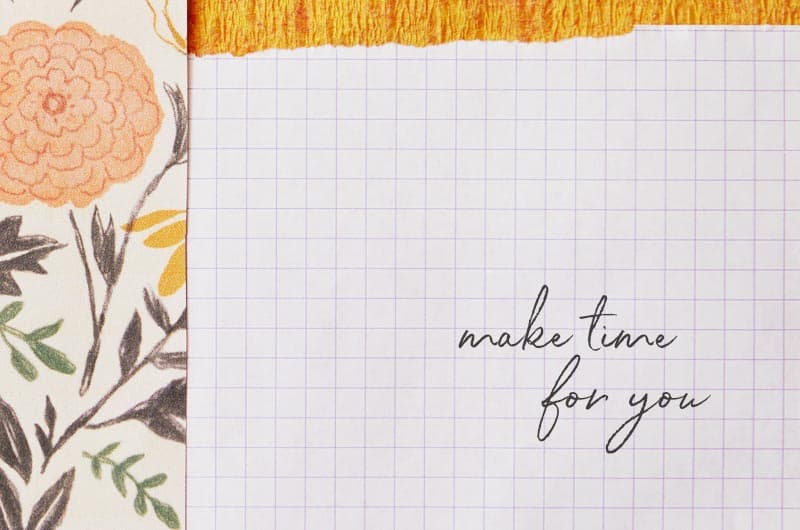 make time
for you